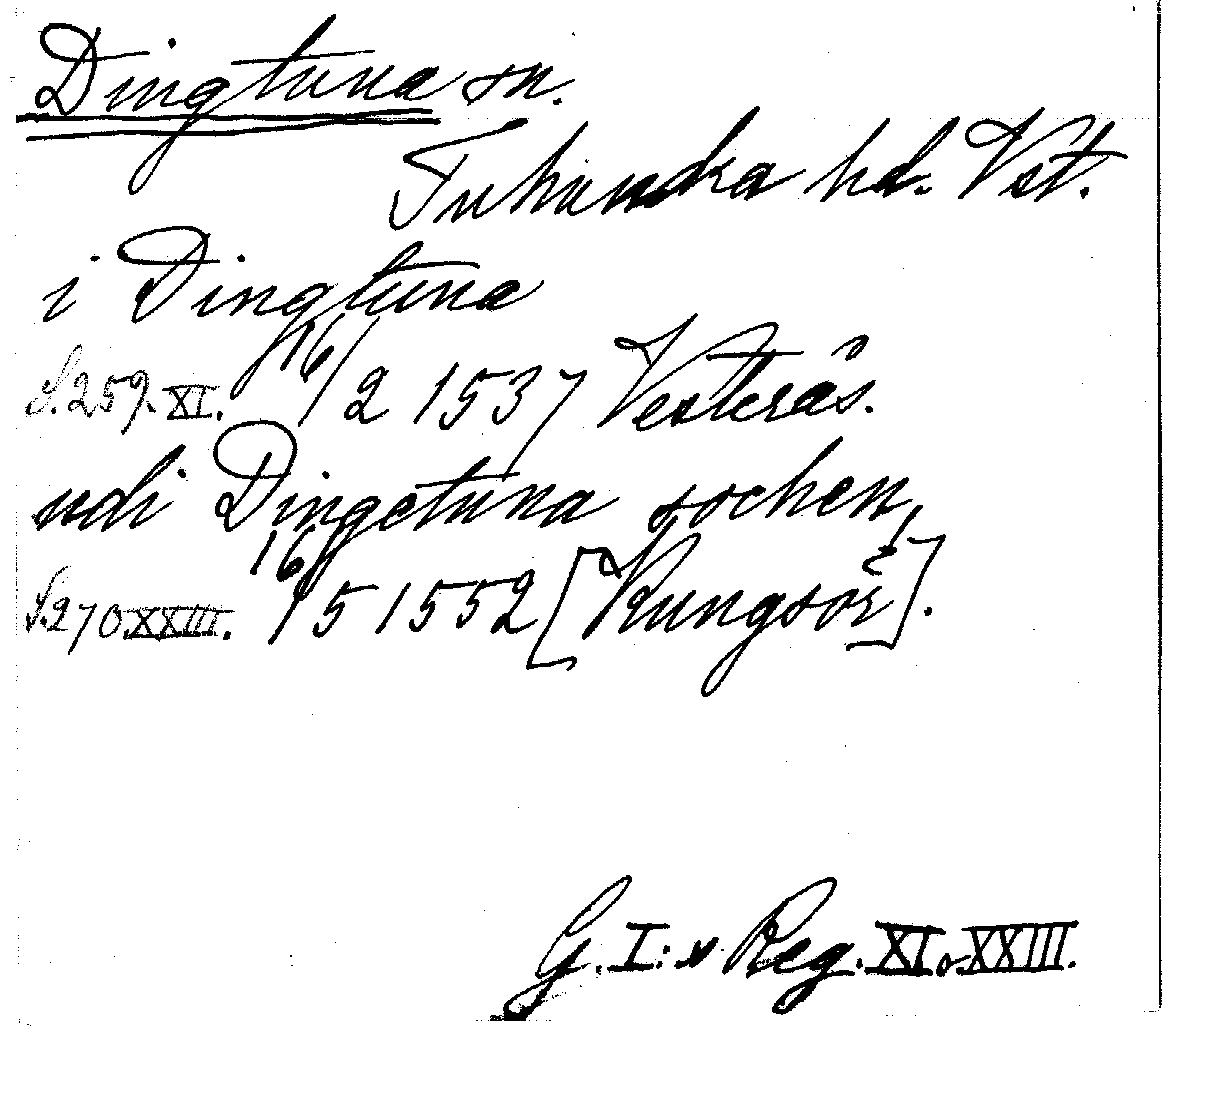 Dingtuna sn.
Tuhundra hd. Vst.
i Dingtuna
S. 259. XI. 16/2 1537 Vesterås.
udi Dingetuna sochen,
S. 270 XXIII. 16/5 1552 [Kungsör].
G. I:s Reg. XI o XXIII.